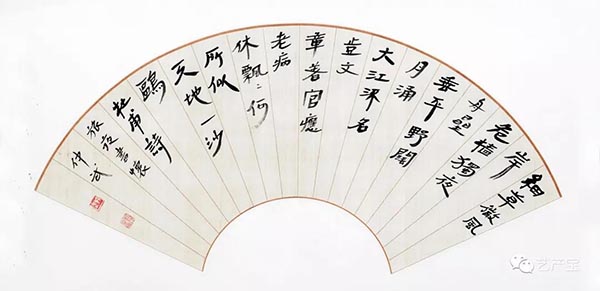 細草微風
岸
危檣獨夜
舟星
垂平野闊
月涌
大江流名
豈文
章著官應
老病
休飄〻何
所似
天地一沙
鷗
杜甫詩
旅夜書懷
仲武
艺产宝